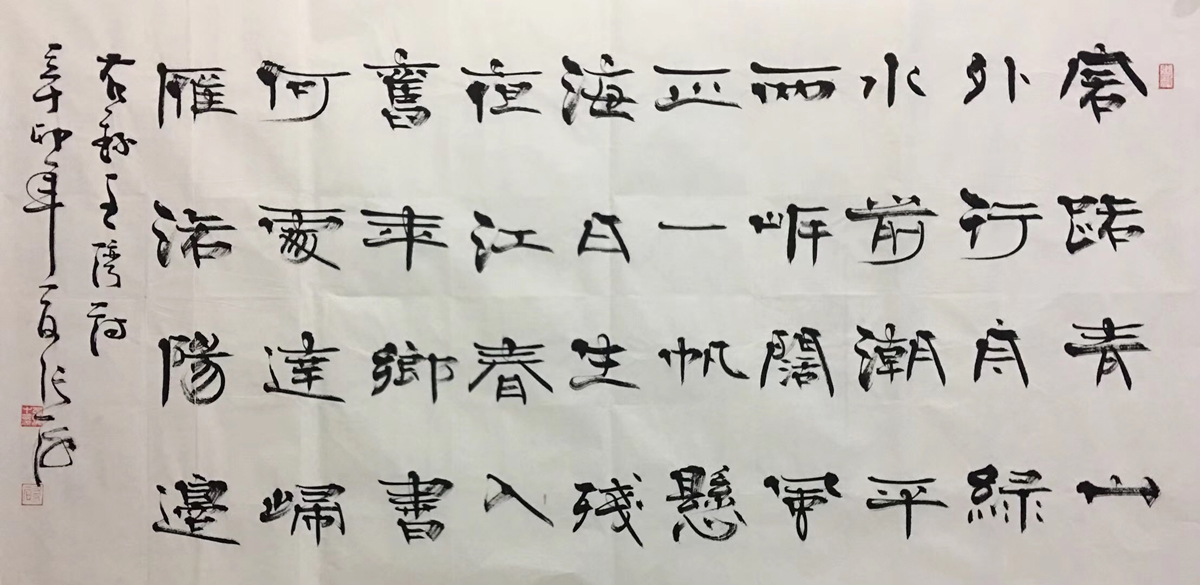 客路青山
外行舟綠
水前潮平
兩岸闊風
正一帆懸
海日生残
夜江春入
舊年鄉書
何處達歸
雁洛陽邊
右録王灣詩
辛卯年夏張海